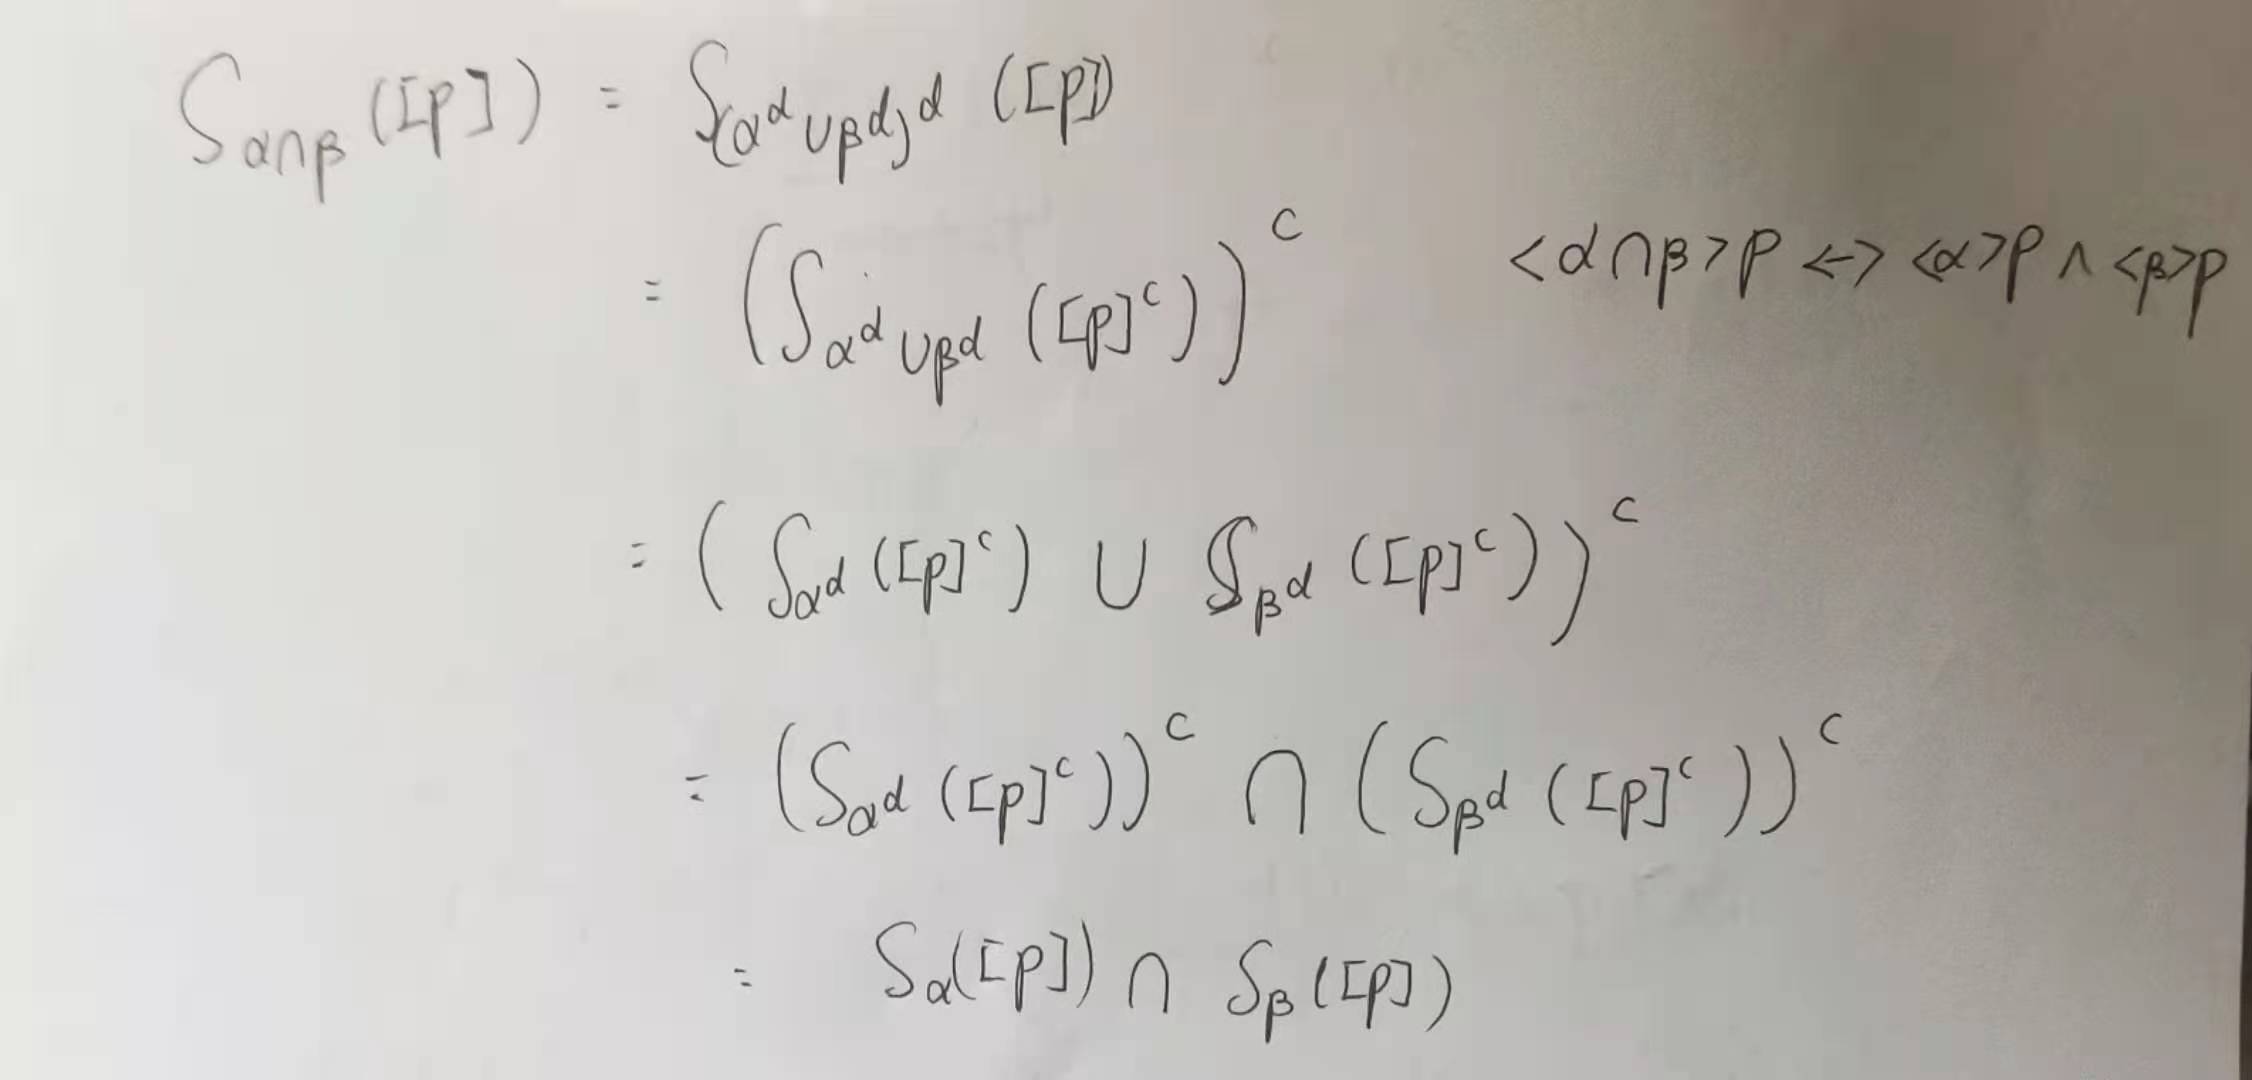 S_{α∩β}([p]) = S_{(α^d ∪ β^d)^d}([p])
= (S_{α^d ∪ β^d}([p]^c))^c
<α∩β>p <-> <α>p ∧ <β>p
= (S_{α^d}([p]^c) ∪ S_{β^d}([p]^c))^c
= (S_{α^d}([p]^c))^c ∩ (S_{β^d}([p]^c))^c
= S_α([p]) ∩ S_β([p])